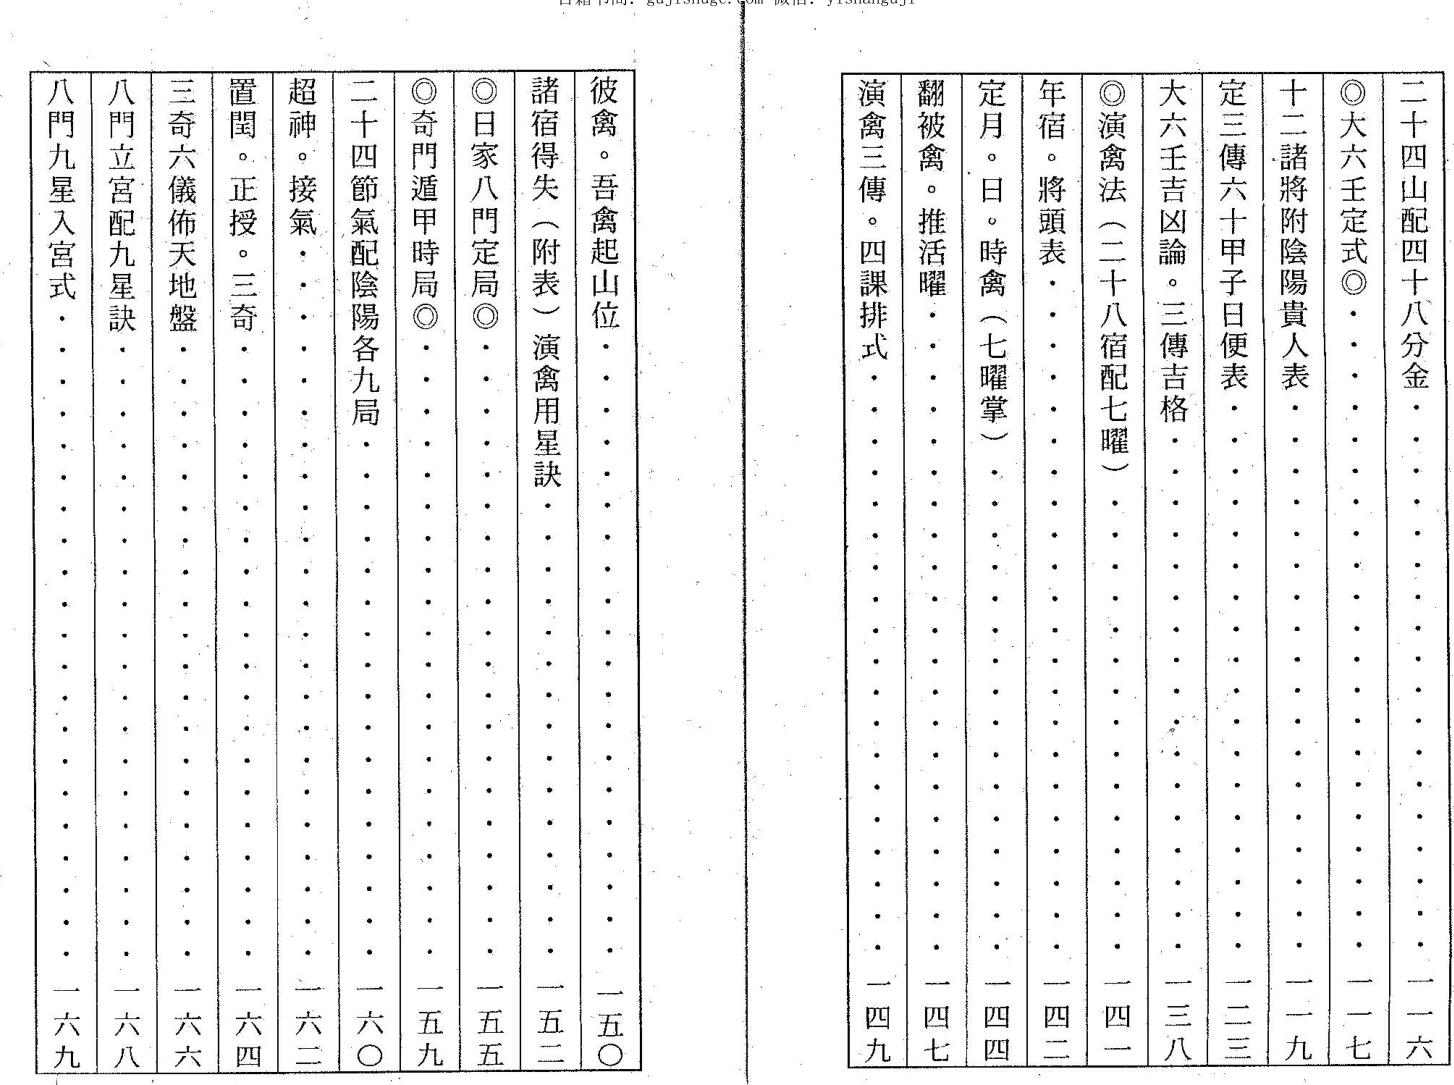 二十四山配四十八分金・・・・・・・・・・・・・・・・・・一一六
◎大六壬定式◎・・・・・・・・・・・・・・・・・・・・・一一七
十二諸將附陰陽貴人表・・・・・・・・・・・・・・・・・・一一九
定三傳六十甲子日便表・・・・・・・・・・・・・・・・・・一二三
大六壬吉凶論。三傳吉格・・・・・・・・・・・・・・・・・一三八
◎演禽法（二十八宿配七曜）・・・・・・・・・・・・・・・一四一
年宿。將頭表・・・・・・・・・・・・・・・・・・・・・・一四二
定月。日。時禽（七曜掌）・・・・・・・・・・・・・・・・一四四
翻被禽。推活曜・・・・・・・・・・・・・・・・・・・・・一四七
演禽三傳。四課排式・・・・・・・・・・・・・・・・・・・一四九
彼禽。吾禽起山位・・・・・・・・・・・・・・・・・・・・一五〇
諸宿得失（附表）演禽用星訣・・・・・・・・・・・・・・・一五二
◎日家八門定局◎・・・・・・・・・・・・・・・・・・・・一五五
◎奇門遁甲時局◎・・・・・・・・・・・・・・・・・・・・一五九
二十四節氣配陰陽各九局・・・・・・・・・・・・・・・・・一六〇
超神。接氣・・・・・・・・・・・・・・・・・・・・・・・一六二
置閏。正授。三奇・・・・・・・・・・・・・・・・・・・・一六四
三奇六儀佈天地盤・・・・・・・・・・・・・・・・・・・・一六六
八門立宮配九星訣・・・・・・・・・・・・・・・・・・・・一六八
八門九星入宮式・・・・・・・・・・・・・・・・・・・・・一六九